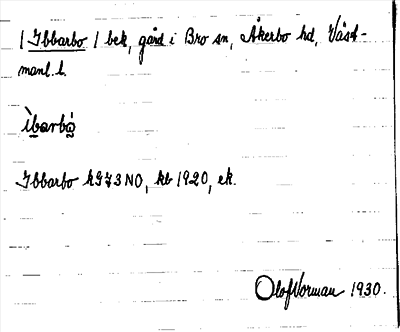 / Ibbarbo / bek, gård i Bro sn, Åkerbo hd, Väst-
manl. l.
ìbarbó̤
Ibbarbo kG73NO, kb 1920, ek.
Olof Norman 1930.